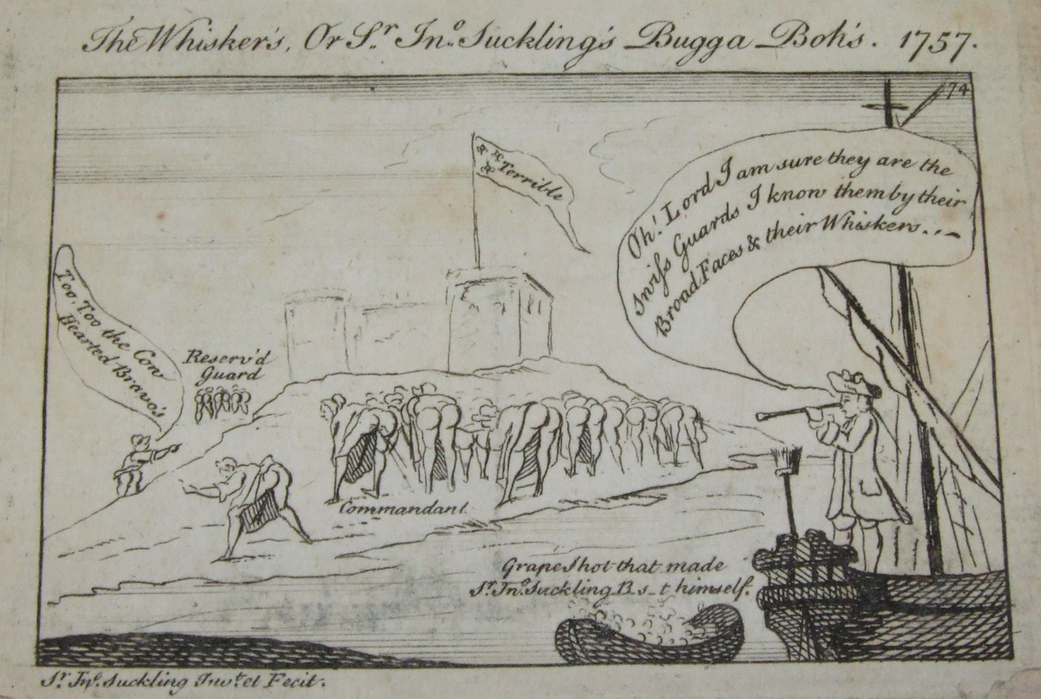 The Whisker's, Or Sr. Jno. Suckling's Bugga Boh's. 1757.
74
& &c Terrible
Oh! Lord I am sure they are the
swiss Guards I know them by their
Broad Faces & their Whiskers...
Too, Too the Cow
Hearted Bravo's
Reserv'd
Guard
Commandant.
Grape Shot that made
Sr. Jno. Suckling B.s_t himself.
Sr. Jno. Suckling Invt. et Fecit.